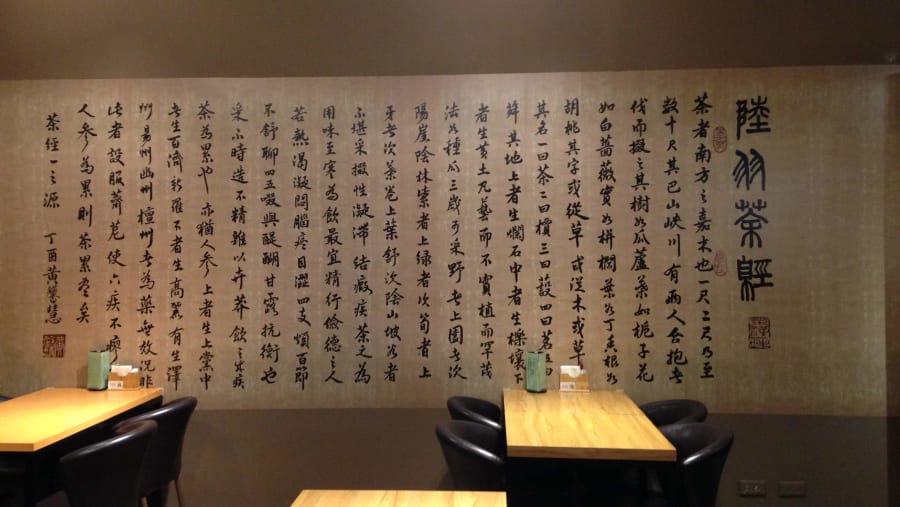 陸羽茶經
茶者南方之嘉木也一尺二尺乃至
數十尺其巴山峽川有兩人合抱者
伐而掇之其樹如瓜蘆葉如梔子花
如白薔薇實如栟櫚葉如丁香根如
胡桃其字或從草或從木或草
其名一曰茶二曰檟三曰蔎四曰茗五曰
荈其地上者生爛石中者生櫟壤
者生黃土凡藝而不實植而罕茂
法如種瓜三歲可采野者上園者次
陽崖陰林紫者上綠者次筍者上
牙者次葉卷上葉舒次陰山坡谷者
不堪采掇性凝滯結瘕疾茶之為
用味至寒為飲最宜精行儉德之人
若熱渴凝悶腦疼目澀四支煩百節
不舒聊四五啜與醍醐甘露抗衡也
采不時造不精雜以卉莽飲之成疾
茶為累也亦猶人參上者生上黨中
者生百濟新羅下者生高麗有生澤
州易州幽州檀州者為藥無效況非
此者設服薺苨使六疾不瘳
人參為累則茶累盡矣
茶經一之源 丁酉黃慧